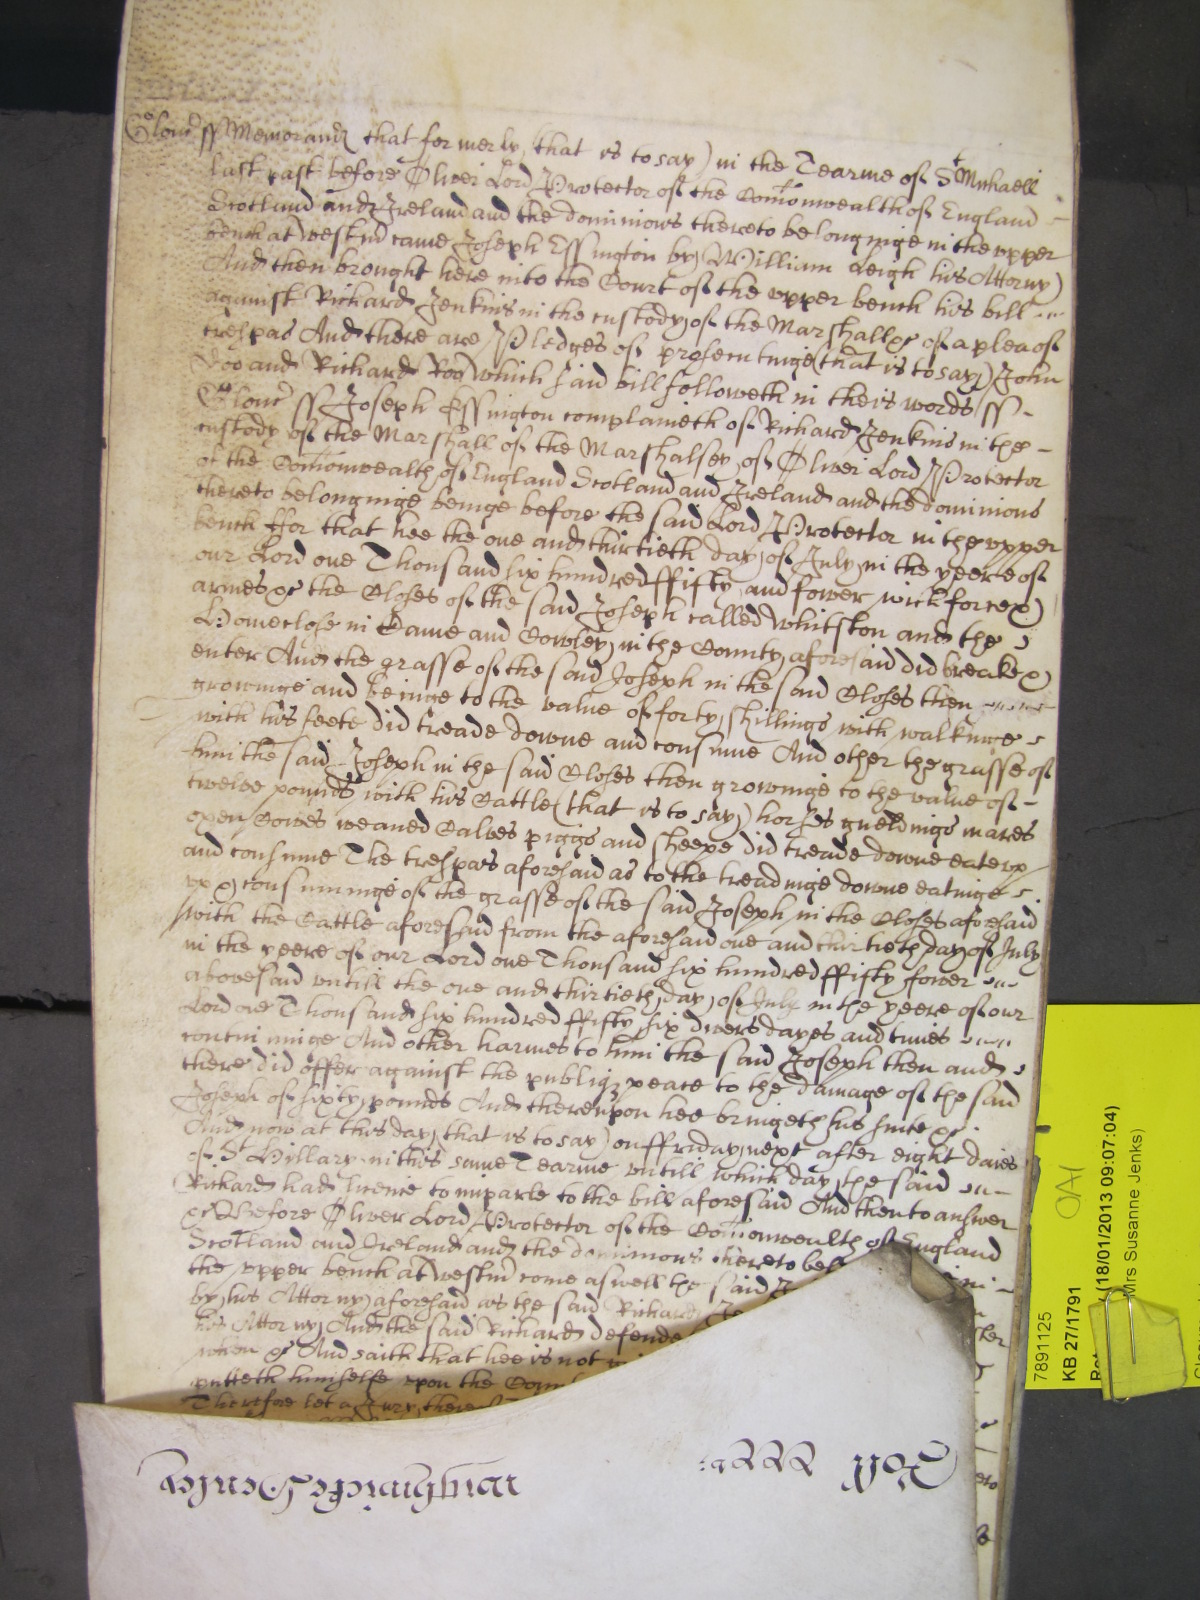 Glouc ss Memorand that formerly (that is to say) in the Tearme of St Michaell
last past before Oliver Lord Protector of the Comonwealth of England
Scotland and Ireland and the dominions thereto belonginge in the upper
bench at Westm came Joseph Essington by William Leigh his Attorny
And then brought here into the Court of the upper bench his bill
against Richard Jenkins in the custody of the Marshall &c of a plea of
trespas And there are Pledges of prosecutinge (that is to say) John
Doo and Richard Roo which said bill followeth in theis words ss
Glouc ss Joseph Essington complaineth of Richard Jenkins in the
custody of the Marshall of the Marshalsey of Oliver Lord Protector
of the Comonwealth of England Scotland and Ireland and the dominions
thereto belonginge beinge before the said Lord Protector in the upper
bench ffor that hee the one and thirtieth day of July in the yeere of
our Lord one Thousand six hundred ffifty and fower with force &
armes &c the Closes of the said Joseph called Whitston and the
Homeclose in Came and Cowley in the County aforesaid did breake &
enter And the grasse of the said Joseph in the said Closes then
growinge and beinge to the value of forty shillings with walkinge
with his feete did treade downe and consume And other the grasse of
him the said Joseph in the said Closes then growinge to the value of
twelve pounds with his Cattle (that is to say) horses gueldings mares
oxen Cowes weaned Calves piggs and sheepe did treade downe eate up
and consume The trespas aforesaid as to the treadinge downe eatinge
up & consuminge of the grasse of the said Joseph in the Closes aforesaid
with the Cattle aforesaid from the aforesaid one and thirtieth day of July
in the yeere of our Lord one Thousand six hundred ffifty fower
abovesaid untill the one and thirtieth day of July in the yeere of our
Lord one Thousand six hundred ffifty six divers dayes and times
continuinge And other harmes to him the said Joseph then and
there did offer against the publiq peace to the damage of the said
Joseph of sixty pounds And thereupon hee bringeth his suite &c
And now at this day (that is to say) on ffriday next after eight daies
of St Hillary in this same Tearme untill which day the said
Richard had licence to imparle to the bill aforesaid And then to answer
&c Before Oliver Lord Protector of the Comonwealth of England
Scotland and Ireland and the dominions thereto bel
the upper bench at Westm come aswell the said J
by his Attorny aforesaid as the said Richard Je
his Attorny And the said Richard defende
when &c And saith that hee is not
putteth himselfe upon the Coun
Therefore let a Jury there
Roll
7891125
KB 27/1791
(18/01/2013 09:07:04)
Mrs Susanne Jenks)